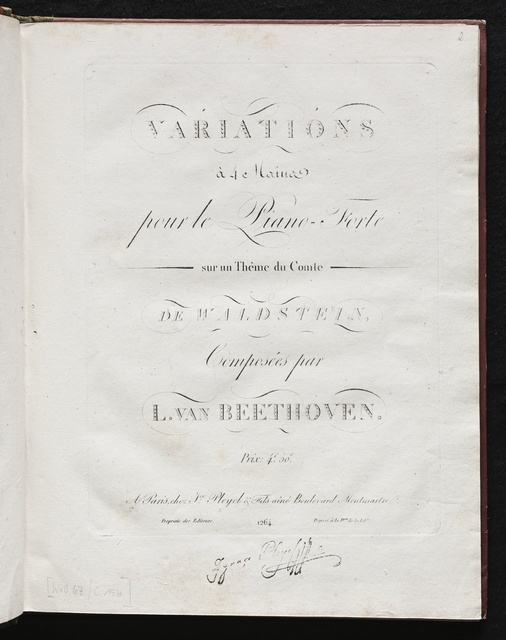 2
VARIATIONS
à 4 Mains
pour le Piano-Forte
sur un Thême du Comte
DE WALDSTEIN,
Composées par
L. VAN BEETHOVEN.
Prix: 4f. 50c.
A Paris, chez Ice. Pleyel & Fils ainé Boulevard Montmartre
Propriété des Editeurs. 1264 Déposé à la